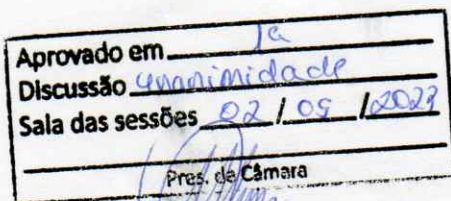 Aprovado em 1a
Discussão unanimidade
Sala das sessões 02 / 05 / 2023
Pres. da Câmara